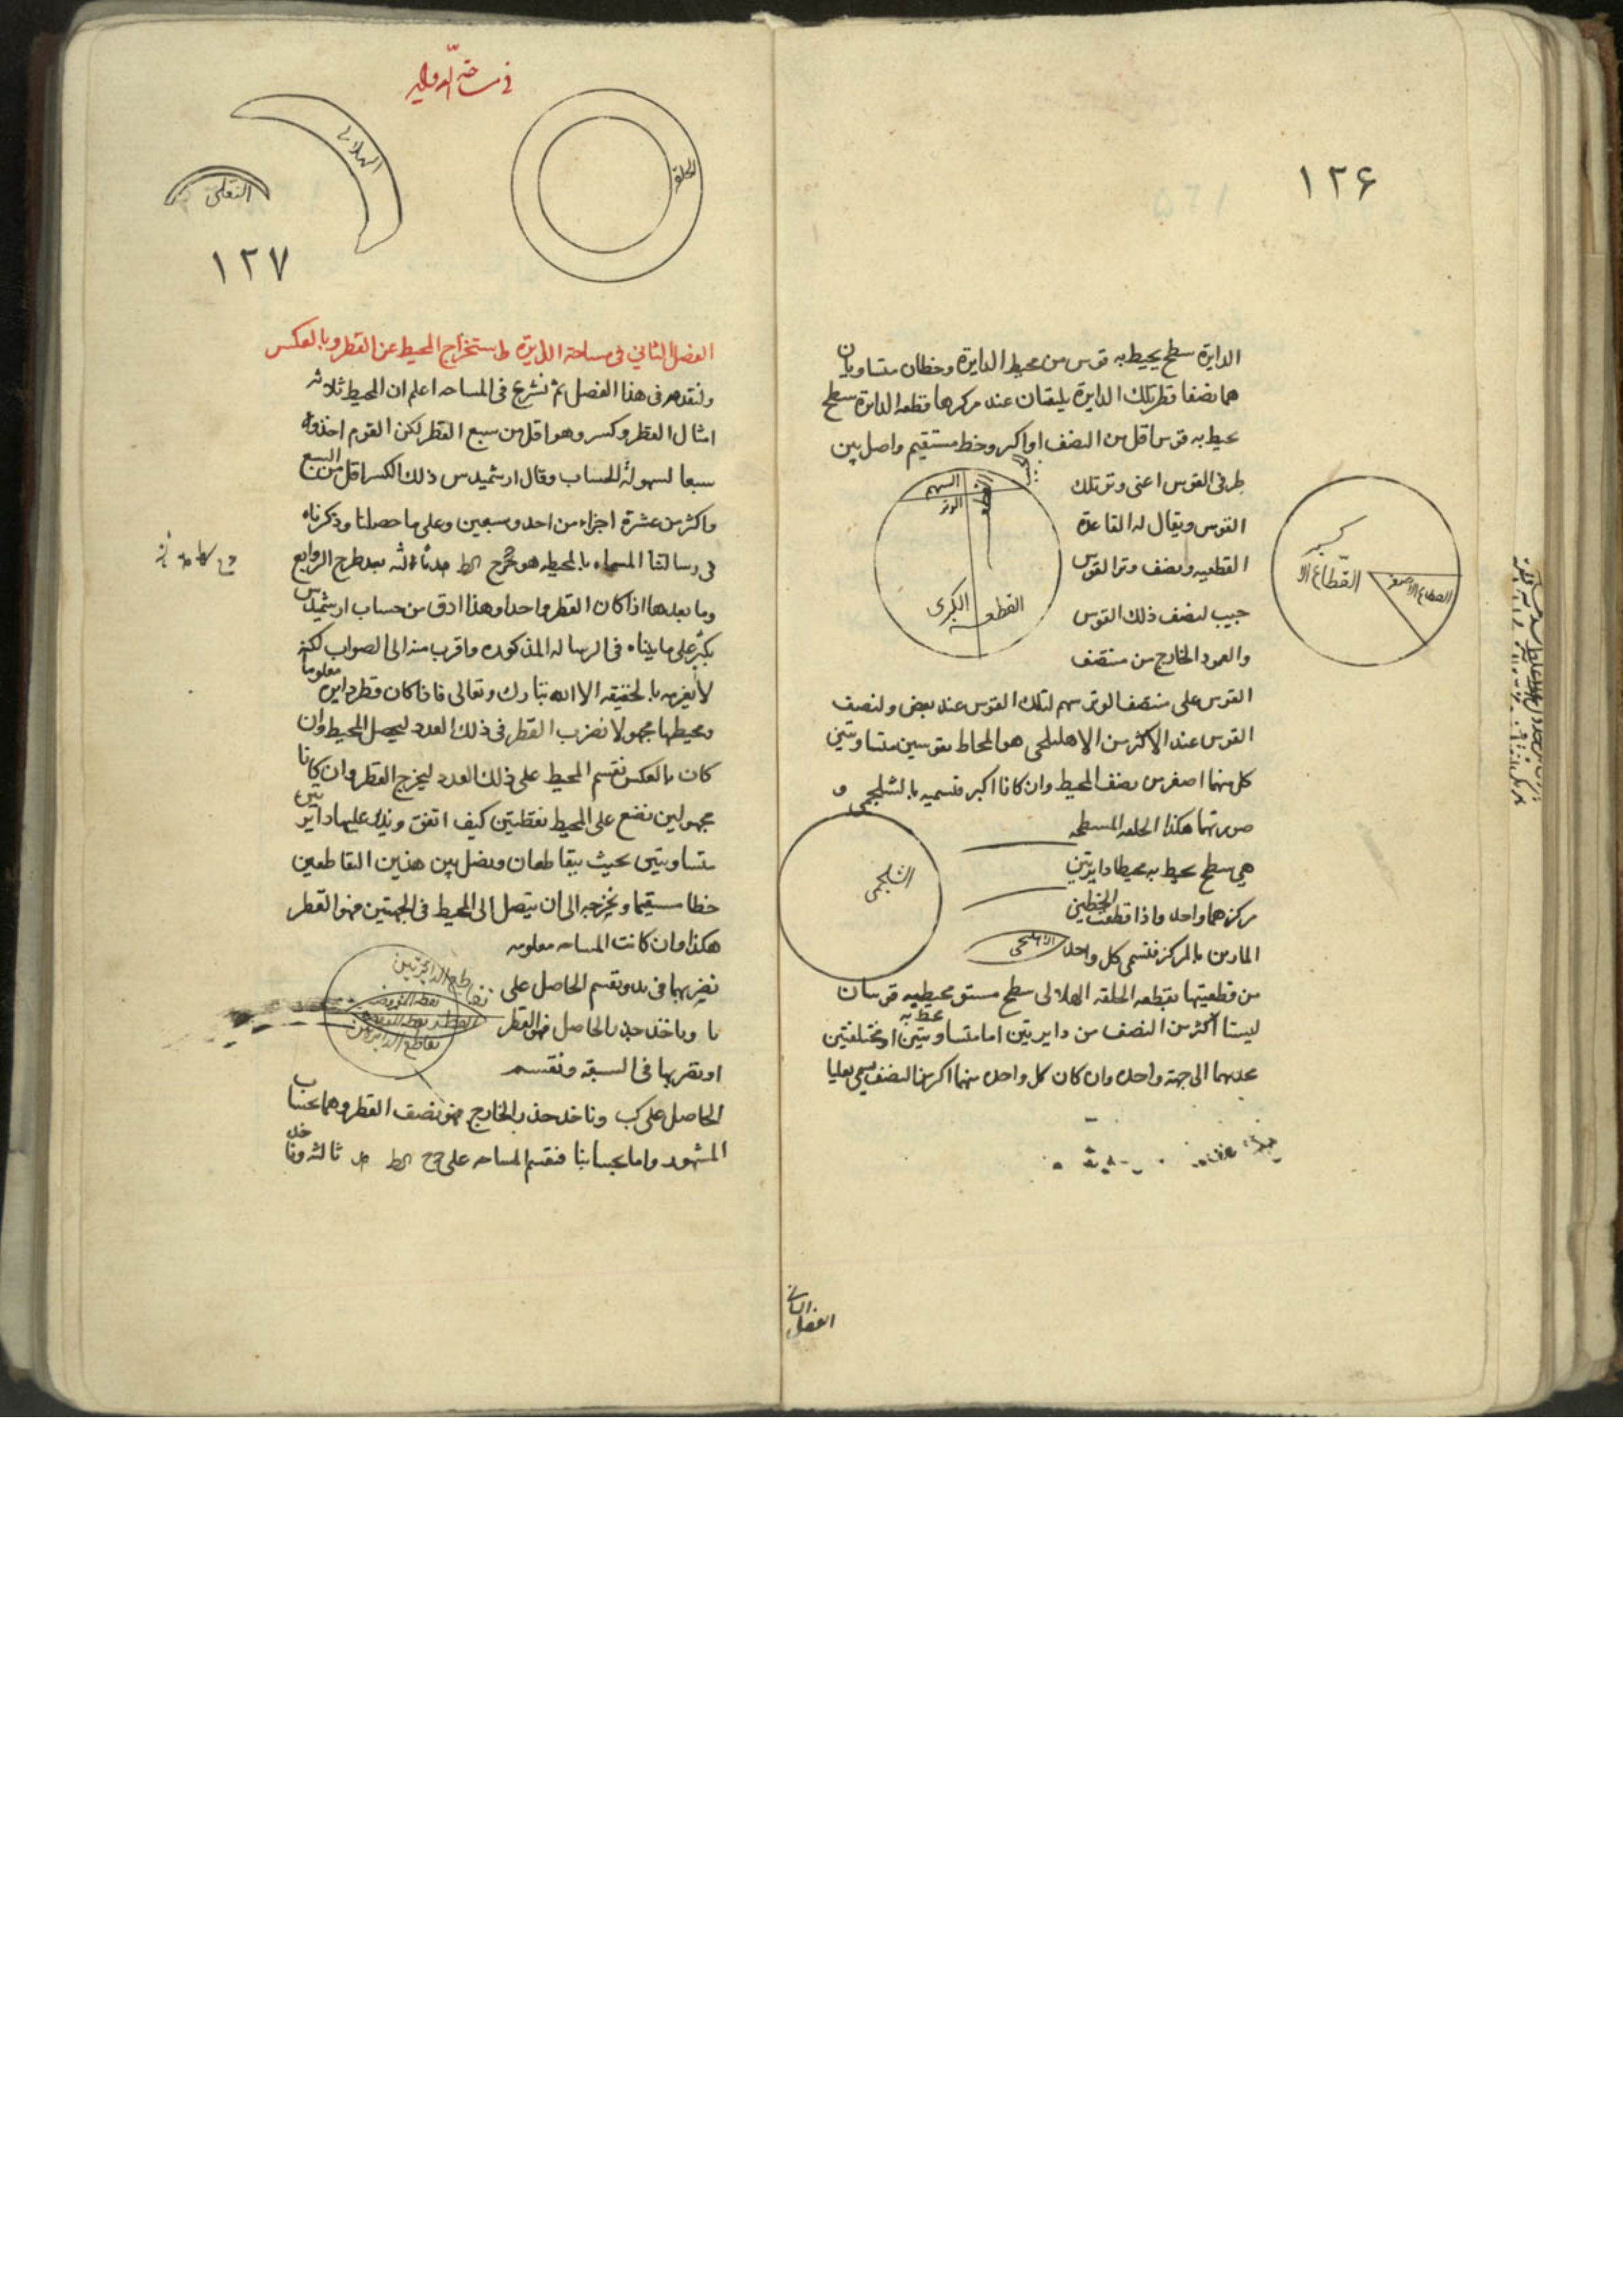 ١٢۶
الدايرة سطح يحيط به قوس من محيط الدايرة وخطان متساويان
هما نصفا قطر تلك الدايرة يلتقيان عند مركزها قطعه الدايرة سطح
يحيط به قوس اقل من النصف او اكبر وخط مستقيم واصل بين
طرفى القوس اعنى وتر تلك
القوس ويقال له القاعدة
القطعيه ونصف وتر القوس
جيب لنصف ذلك القوس
والعمود الخارج من منتصف
السهم
الوتر
القطعه
القطعه الكبرى
القطاع الا كبير
القطاع الاصغر
القوس على منتصف الوتر سهم لتلك القوس عند بعض ولنصف
القوس عند الاكثرين الاهليلجى هو المحاط بقوسين متساويتين
كل منهما اصغر من نصف المحيط وان كانا اكبر فنسميه بالشلجمى و
صورتهما هكذا الحلقه المسطحه
هى سطح يحيط به محيطا دايرتين
مركزهما واحد واذا قطعت الخطين
المارين بالمركز فنسمى كل واحد
الشلجمى
الاهليلجى
من قطعيتها بقطعه الحلقه الهلالى سطح مستو يحيط به قوسان
ليستا اكثر من النصف من دايرتين اما متساويتين او مختلفتين
محدبهما الى جهة واحده وان كان كل واحده منهما اكبر من النصف يسمى نعليا
الفصل الثانى
فى مساحة الدواير
الحلقه
الهلالى
النعلى
١٢٧
الفصل الثاني فى مساحة الدايرة واستخراج المحيط عن القطر وبالعكس
ولنقدم فى هذا الفصل ثم نشرع فى المساحه اعلم ان المحيط ثلاثه
امثال القطر وكسر وهو اقل من سبع القطر لكن القوم اخذوه
سبعا لسهولة الحساب وقال ارشميدس ذلك الكسر اقل من السبع
واكثر من عشرة اجزاء من احد وسبعين وعلى ما حصلنا وذكرناه
فى رسالتنا المسماه بالمحيطه هو ثالثه بعد طرح الروابع
وما بعدها اذا كان القطر واحدا وهذا ادق من حساب ارشميدس
بكثير على ما بيناه فى الرساله المذكوره واقرب منه الى الصواب لكنه
لا يعرفه بالحقيقه الا الله تبارك وتعالى فاذا كان قطر دايره معلوما
ومحيطها مجهولا نضرب القطر فى ذلك العدد ليحصل المحيط وان
كان بالعكس نقسم المحيط على ذلك العدد ليخرج القطر وان كانا
مجهولين نضع على المحيط نقطتين كيف اتفق وندير عليها دايرتين
متساويتين بحيث يتقاطعان ونصل بين هذين التقاطعين
خطا مستقيما ونخرجه الى ان يتصل الى المحيط فى الجهتين فهو القطر
هكذا وان كانت المساحه معلومه
نضربها فى يد ونقسم الحاصل على
يا وناخذ جذر الحاصل فهو القطر
تقاطع الدايرتين
القطر
تقاطع الدايرتين
او نضربها فى السبعة ونقسم
الحاصل على كب وناخذ جذر الخارج فهو نصف القطر وهما بحساب
المشهور واما بحسابنا فنقسم المساحه على ثالثه وناخذ